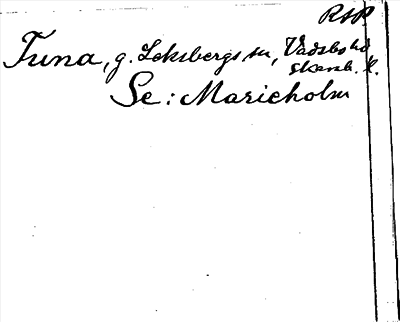 RSR
Tuna, g. Leksbergs sn, Vadsbo hd
Skarab. l.
Se: Marieholm